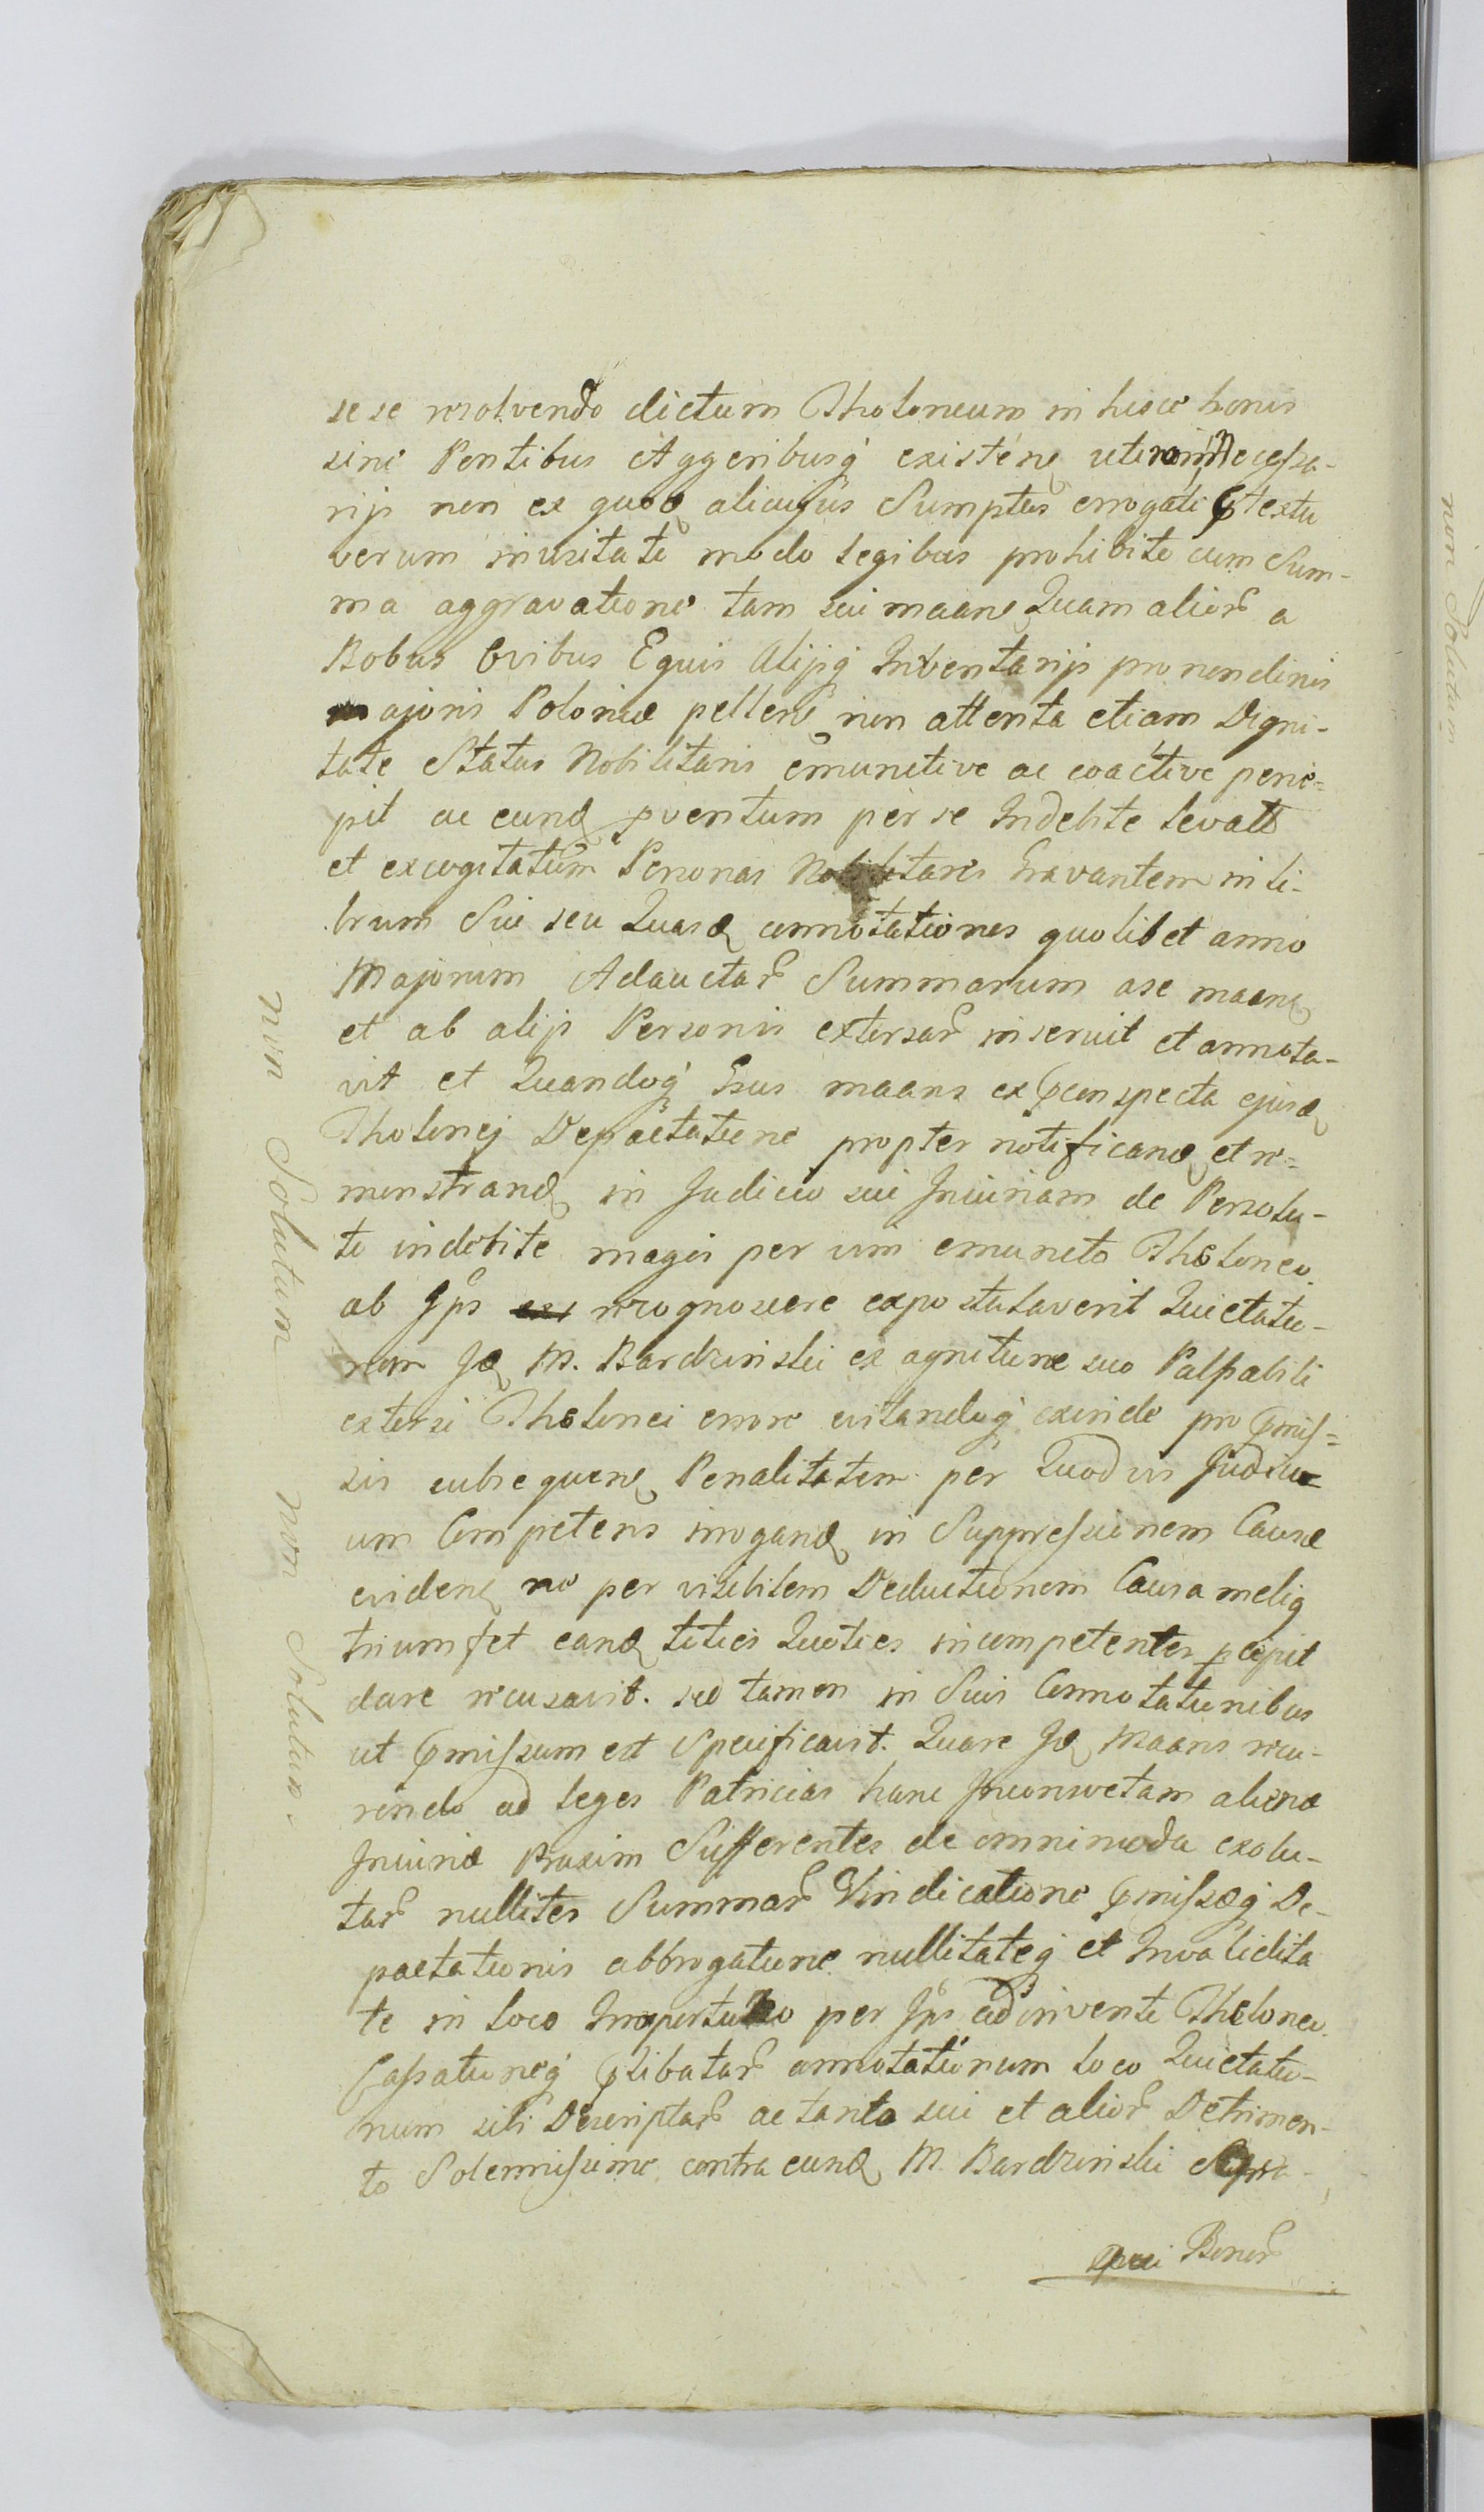 sese resolvendo dictum Tholoneum in hisce bonis
sine Pontibus Aggeribusq existen utinon Necessa-
rijs non ex quoq alicujus Sumptus errogati ptextu
verum inusitato modo legibus prohibito cum Sum-
ma aggravatione tam sui maans Quam alior a
Bobus Ovibus Equis Alijsq Inventarijs pro nundinis
majoris Poloniæ pellen non attenta etiam Digni-
tate Status Nobilitaris emunctive ac coactive perce-
pit ac eund pventum per se Indebite levatt
et excogitatum Personas Nobilitares Gravantem in li-
brum Sui seu Quasd connotationes quolibet anno
Majorum Adauctar Summarum a se maan
et ab alijs Personis extorsar inseruit et annota-
vit et Quandoq Gsus maans ex pconspecta ejusd
Tholonej Depactatione propter notificand et re=
monstrand in Judicio sui Injuriam de Persolu-
to indebite magis per vim emuncto Tholoneo
ab Jpso recognoscere expostulaverit Quietatio-
nem Jd M. Bardzinski ex agnitione suo Palpabili
extorsi Tholonei errore evitandoq exinde pro pmis=
sis subsequen Penalitatem per Quodvis Judici-
um Competens irrogand in Suppressionem Causæ
eviden ne per visibilem Deductionem Causa meliq
triumfet eand toties Quoties incompetenter pcepit
dare recusavit. sed tamen in Suis Connotationibus
ut pmissum est Specificavit. Quare Jd Maans recu-
rendo ad leges Patricias hanc Inconsvetam alienæ
Injuriæ Praxim Sufferentes de omnimoda exolu-
tar nulliter Summar Vindicatione pmissæq De-
pactationis abbrogatione nullitateq et Invalidita
te in loco Inopertuno per Jps adinventi Tholonei
Cassationeq plibatar annotationum loco Quietatio-
num sibi Descriptar ac tanto sui et alior Detrimen-
to Solennissime contra eund M. Bardzinski
Bonor
non Solutum non Solutum
non Solutum